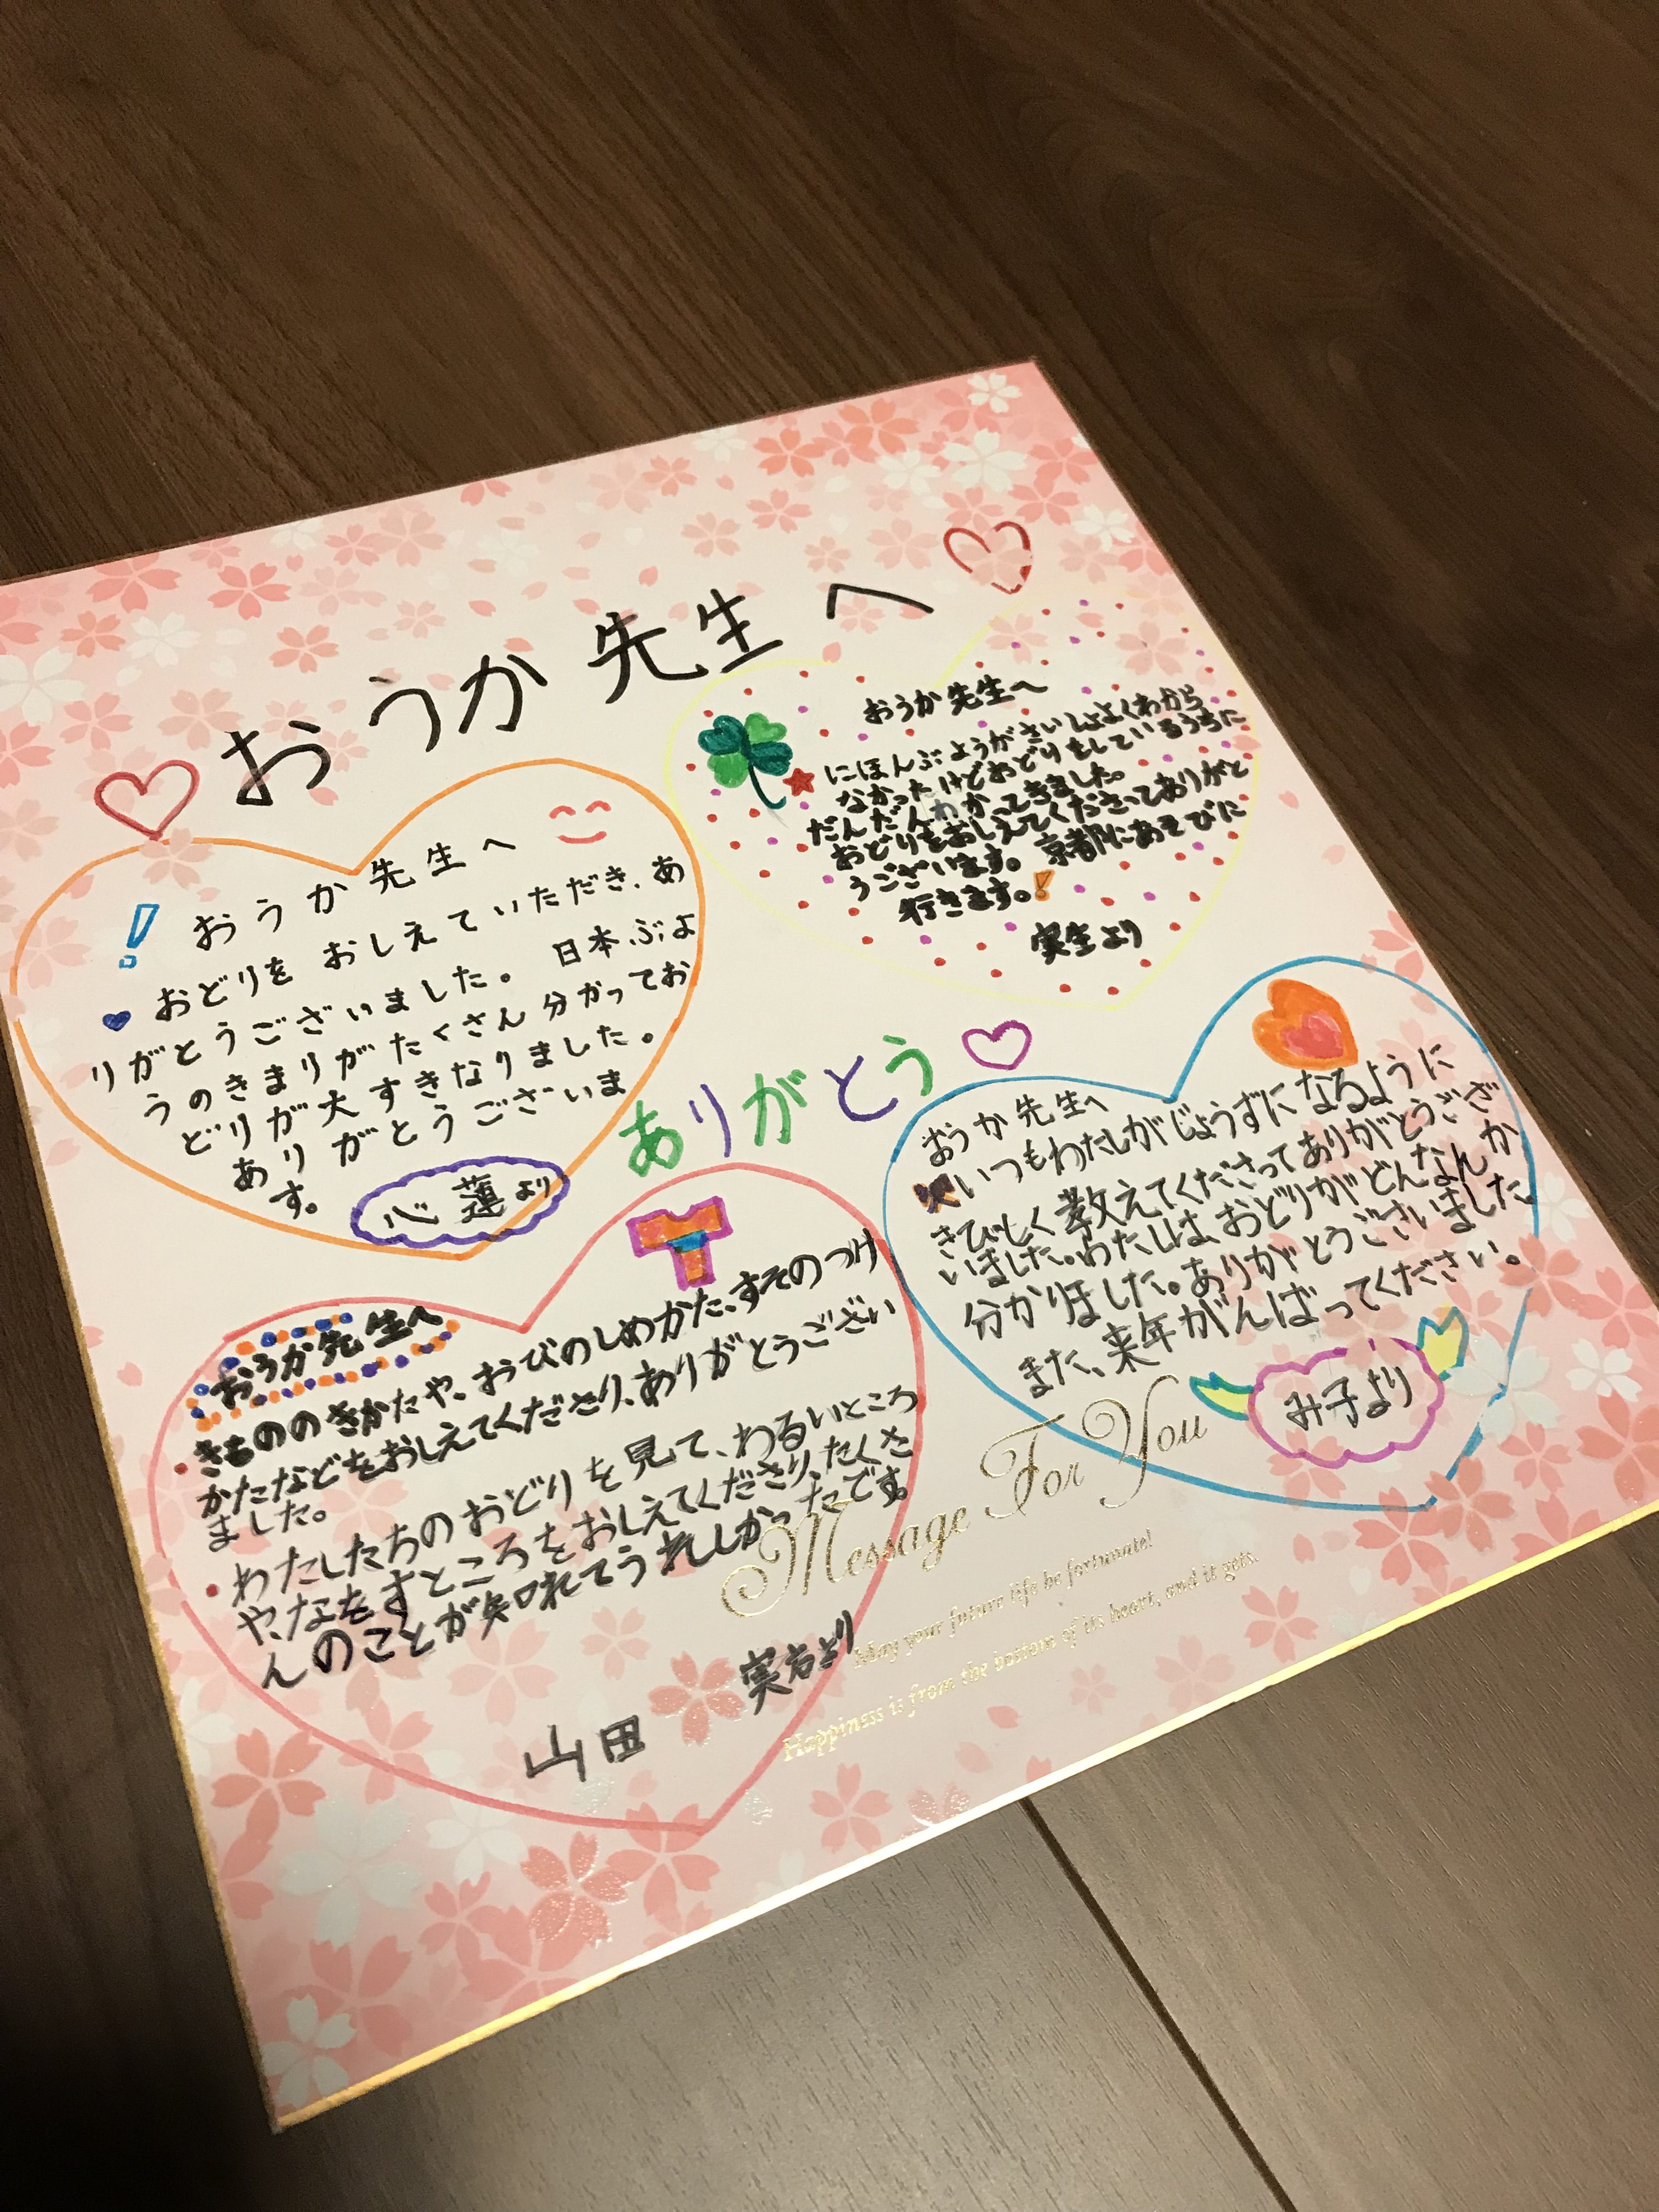 おうか先生へ
おうか先生へ
おどりを おしえていただき、あ
りがとうございました。 日本ぶよ
うのきまりがたくさん分かってお
どりが大すきなりました。
ありがとうございま
す。
心蓮より
おうか先生へ
にほんぶようがさいしょよくわから
なかったけどおどりをしているうちに
だんだんわかってきました。
おどりをおしえてくださっておりがと
うございます。京都にあそびに
行きます。!
実生より
ありがとう
おうか先生へ
きもののきかたや、おびのしめかた、すそのつけ
かたなどをおしえてくださり、ありがとうござい
ました。
わたしたちのおどりを見て、わるいところ
や、なおすところをおしえてくださり、たくさ
んのことが知れてうれしかったです。
山田 実右より
おうか先生へ
いつもわたしがじょうずになるように
きびしく教えてくださってありがとうござ
いました。わたしは、おどりがどんなんか
分かりました。ありがとうございました。
また、来年がんばってください。
み子より
Message For You
May your future life be fortunate!
Happiness is from the bottom of its heart, and it gets.